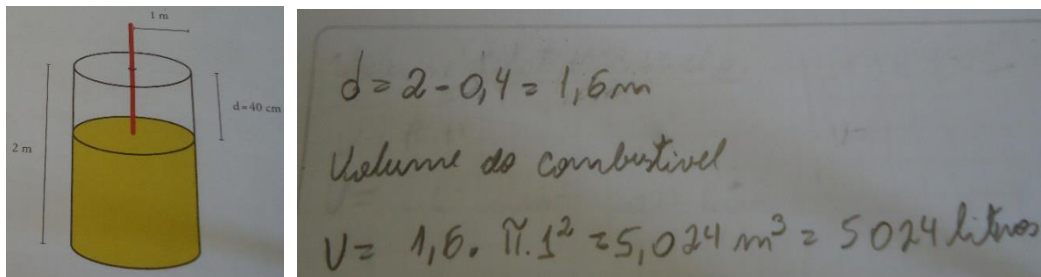 1 m
d = 40 cm
2 m
d = 2 - 0,4 = 1,6 m
Volume do combustivel
V = 1,6 . π . 1² = 5,024 m³ = 5024 litros